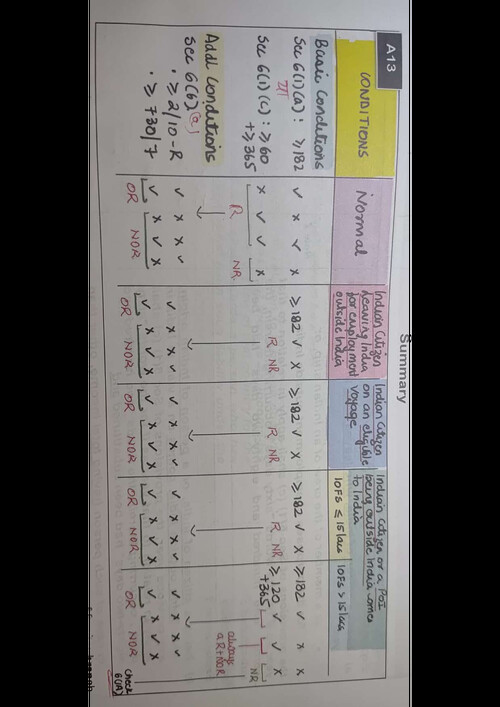 Summary
A13
CONDITIONS
Normal
Indian Citizen leaving India for employment outside India
Indian Citizen on an eligible voyage
Indian Citizen or a PoI being outside India comes to India
IOFS ≤ 15 lacs
IOFS > 15 lacs
Basic Conditions
Sec 6(1)(a): ≥182
✓ x ✓ x
≥182 ✓ x
≥182 ✓ x
≥182 ✓ x
≥182 ✓ x x
Sec 6(1)(c): ≥60
+≥365
x ✓ ✓ x
R NR
R NR
R NR
R NR
≥120 ✓ ✓ x
+365
R
NR
always
R+NOR
NR
Addl Conditions
Sec 6(6)(a)
• ≥2/10-R
✓ x x ✓
✓ x x ✓
✓ x x ✓
✓ x x ✓
✓ x x ✓
• ≥730/7
✓ x ✓ x
✓ x ✓ x
✓ x ✓ x
✓ x ✓ x
✓ x ✓ x
OR NOR
OR NOR
OR NOR
OR NOR
OR NOR
Check
6(1A)